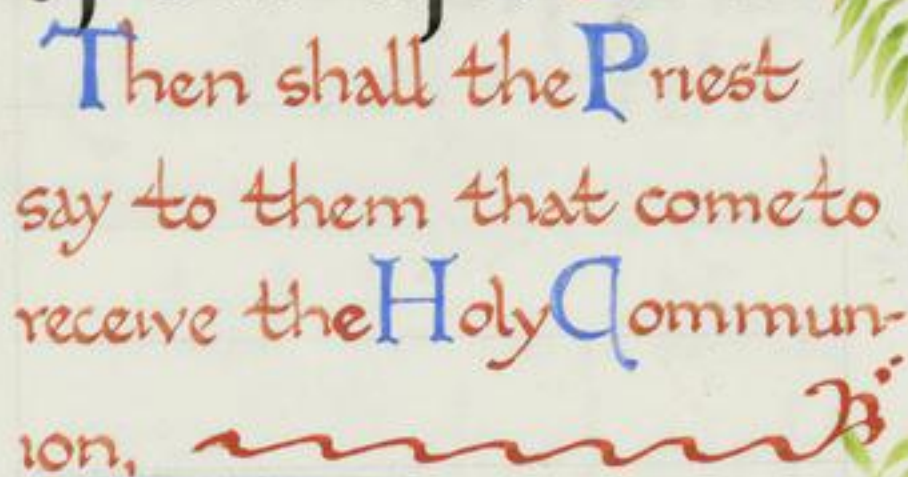 Then shall the Priest
say to them that come to
receive the Holy Commun-
ion,